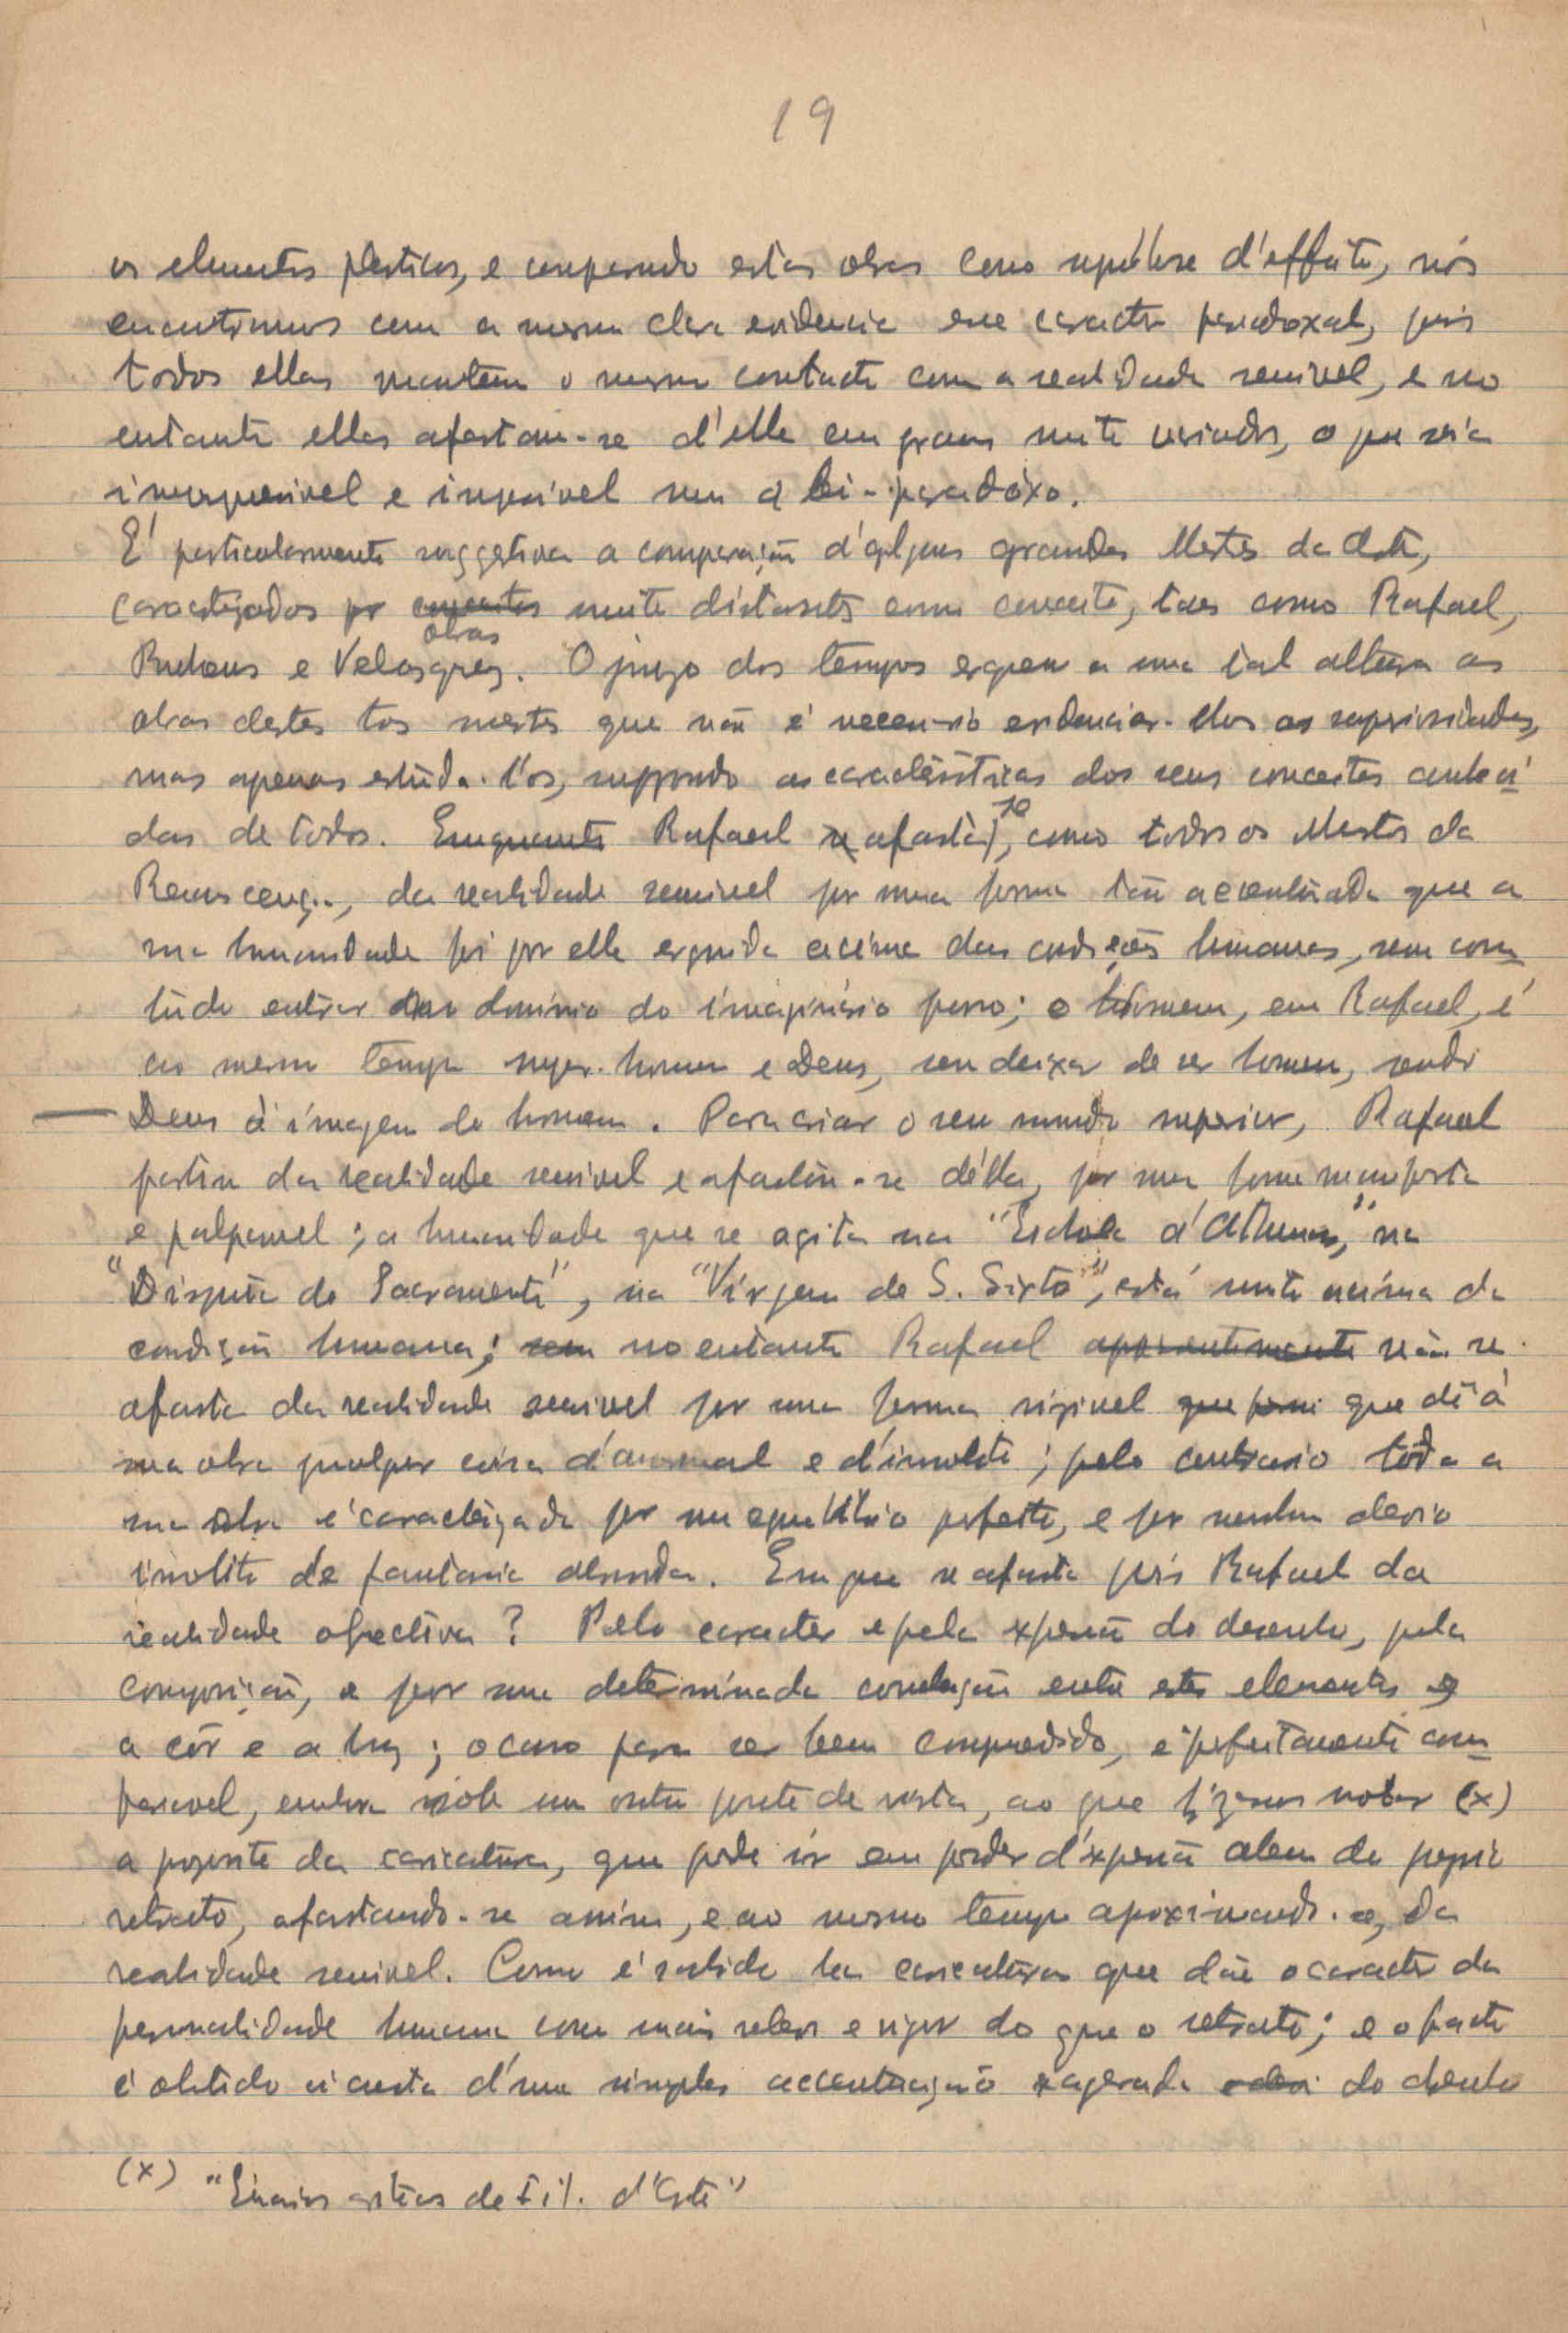 19
os elementos plasticos, e comparando estas obras como synthese d'effeito, nós
encontramos com a mesma clara evidencia esse caracter paradoxal, pois
todos ellas mantem o mesmo contacto com a realidade sensivel, e no
entanto ellas afastam-se d'ella em graus muito variados, o que seria
e impossivel sem a lei-paradoxo.
E' particularmente suggestiva a comparação d'alguns grandes Mestres da Arte,
caracterizados por conceitos muito distanctes como conceito, taes como Rafael,
obras
Rubens e Velasquez. O juizo dos tempos ergueu a uma tal altura as
obras destes tres mestres que não é necessario evidenciar-lhes as superioridades,
mas apenas estuda-l'os, suppondo as caracteristicas dos seus conceitos conheci
das de todos. Emquanto Rafael se afasta se, como todos os Mestres da
Renascença, da realidade sensivel por uma forma tão accentuada que a
sua humanidade foi por elle erguida acima das condições humanas, sem com
tudo entrar no dominio do imaginario puro; o homem, em Rafael, é
ao mesmo tempo super-homem e Deus, sem deixar de ser homem, sendo
Deus á imagem do homem. Para criar o seu mundo superior, Rafael
partiu da realidade sensivel e afastou-se d'ella, por uma forma manifesta
e palpavel; a humanidade que se agita na "Escola d'Athenas," na
"Disputa do Sacramento", na "Virgem de S. Sixto", está muito acima da
condição humana; sem no entanto Rafael apparentemente não se
afasta da realidade sensivel por uma forma risivel que dê á
sua obra qualquer coisa d'anormal e d'insolito; pelo contrario toda a
sua obra é caracterizada por um equilibrio perfeito, e por nenhum
insolito de fantasia absurda. Em que se afasta pois Rafael da
realidade objectiva? Pelo caracter e pela expressão do desenho, pela
composição, e por uma determinada correlação entre estes elementos e
a côr e a luz; o caso para ser bem comprehendido, é perfeitamente com
paravel, embora sob um outro ponto de vista, ao que fizemos notar (x)
a proposito da caricatura, que pode ir em poder d'expressão alem do proprio
retrato, afastando-se assim, e ao mesmo tempo aproximando-se, da
realidade sensivel. Como é sabido ha caricaturas que dão o caracter da
personalidade humana com mais relevo e vigor do que o retrato; e o facto
é obtido á custa d'uma simples accentuação exagerada do desenho
(x) "Ensaios criticos de Fil. d'Arte"